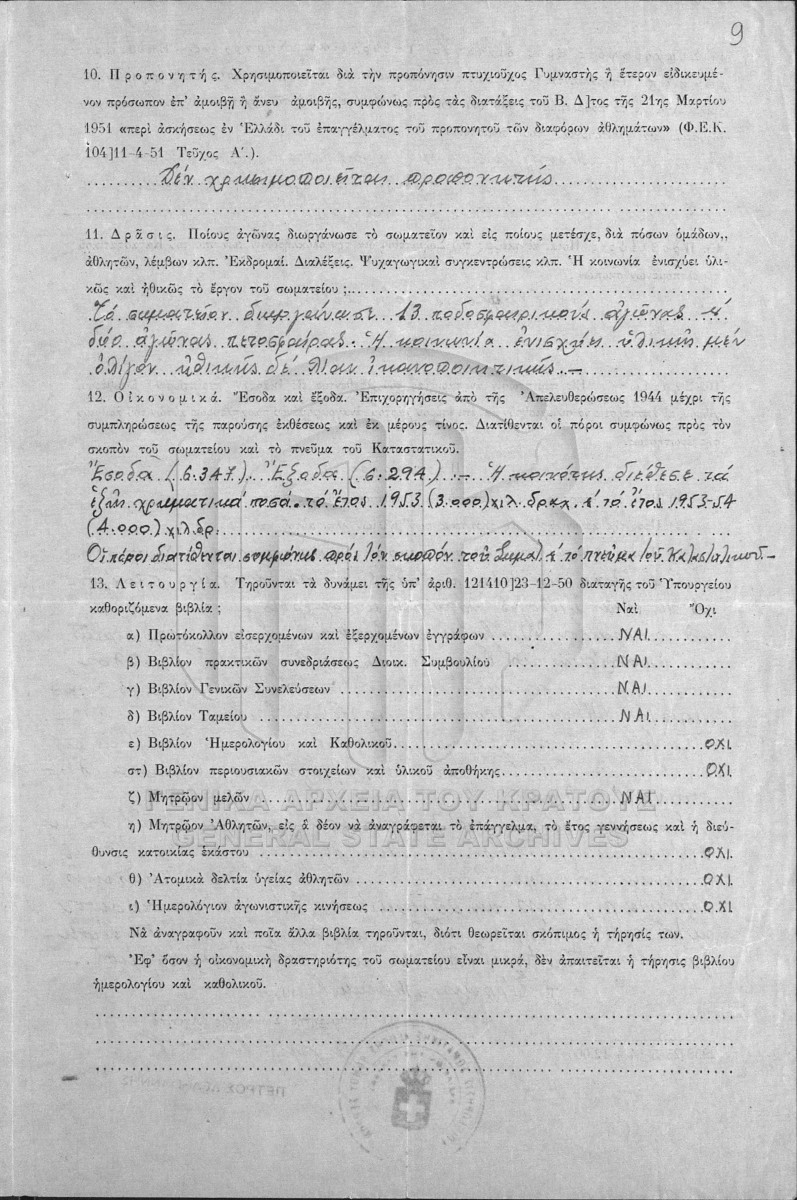 9
10. Προπονητής. Χρησιμοποιεῖται διὰ τὴν προπόνησιν πτυχιοῦχος Γυμναστὴς ἢ ἕτερον εἰδικευμέ-
νον πρόσωπον ἐπ' ἀμοιβῇ ἢ ἄνευ ἀμοιβῆς, συμφώνως πρὸς τὰς διατάξεις τοῦ Β. Δ]τος τῆς 21ης Μαρτίου
1951 «περὶ ἀσκήσεως ἐν Ἑλλάδι τοῦ ἐπαγγέλματος τοῦ προπονητοῦ τῶν διαφόρων ἀθλημάτων» (Φ.Ε.Κ.
104]11-4-51 Τεῦχος Α΄.).
Δέν χρησιμοποιεῖται προπονητής
11. Δρᾶσις. Ποίους ἀγῶνας διωργάνωσε τὸ σωματεῖον καὶ εἰς ποίους μετέσχε, διὰ πόσων ὁμάδων,,
ἀθλητῶν, λέμβων κλπ. Ἐκδρομαί. Διαλέξεις. Ψυχαγωγικαὶ συγκεντρώσεις κλπ. Ἡ κοινωνία ἐνισχύει ὑλι-
κῶς καὶ ἠθικῶς τὸ ἔργον τοῦ σωματείου;
Τό σωματεῖον διωργάνωσε 13 ποδοσφαιρικούς ἀγῶνας
δύο ἀγῶνας πετοσφαίρας. Ἡ κοινωνία ἐνισχύει ὑλικῶς μέν
ὀλίγον ἠθικῶς δέ λίαν ἱκανοποιητικῶς.—
12. Οἰκονομικά. Ἔσοδα καὶ ἔξοδα. Ἐπιχορηγήσεις ἀπὸ τῆς Ἀπελευθερώσεως 1944 μέχρι τῆς
συμπληρώσεως τῆς παρούσης ἐκθέσεως καὶ ἐκ μέρους τίνος. Διατίθενται οἱ πόροι συμφώνως πρὸς τὸν
σκοπὸν τοῦ σωματείου καὶ τὸ πνεῦμα τοῦ Καταστατικοῦ.
Ἔσοδα (6.347). Ἔξοδα (6.294).— Ἡ κοινότης διέθεσε τά
ἑξῆς χρηματικά ποσά. τό ἔτος 1953 (3.000) χιλ. δραχ. τό ἔτος 1953-54
(4.000) χιλ. δρ.
Οἱ πόροι διατίθενται συμφώνως πρός τόν σκοπόν τοῦ Σωματ. τό πνεῦμα τοῦ Καταστατικοῦ—
13. Λειτουργία. Τηροῦνται τὰ δυνάμει τῆς ὑπ' ἀριθ. 121410]23-12-50 διαταγῆς τοῦ Ὑπουργείου
καθοριζόμενα βιβλία; Ναὶ Ὄχι
α) Πρωτόκολλον εἰσερχομένων καὶ ἐξερχομένων ἐγγράφων ΝΑΙ.
β) Βιβλίον πρακτικῶν συνεδριάσεως Διοικ. Συμβουλίου ΝΑΙ.
γ) Βιβλίον Γενικῶν Συνελεύσεων ΝΑΙ.
δ) Βιβλίον Ταμείου ΝΑΙ.
ε) Βιβλίον Ἡμερολογίου καὶ Καθολικοῦ ΟΧΙ.
στ) Βιβλίον περιουσιακῶν στοιχείων καὶ ὑλικοῦ ἀποθήκης ΟΧΙ.
ζ) Μητρῷον μελῶν ΝΑΙ.
ΓΕΝΙΚΑ ΑΡΧΕΙΑ ΤΟΥ ΚΡΑΤΟΥΣ
η) Μητρῷον Ἀθλητῶν, εἰς ἃ δέον νὰ ἀναγράφεται τὸ ἐπάγγελμα, τὸ ἔτος γεννήσεως καὶ ἡ διεύ-
GENERAL STATE ARCHIVES
θυνσις κατοικίας ἑκάστου ΟΧΙ.
θ) Ἀτομικὰ δελτία ὑγείας ἀθλητῶν ΟΧΙ.
ι) Ἡμερολόγιον ἀγωνιστικῆς κινήσεως ΟΧΙ
Νὰ ἀναγραφοῦν καὶ ποῖα ἄλλα βιβλία τηροῦνται, διότι θεωρεῖται σκόπιμος ἡ τήρησίς των.
Ἐφ' ὅσον ἡ οἰκονομικὴ δραστηριότης τοῦ σωματείου εἶναι μικρά, δὲν ἀπαιτεῖται ἡ τήρησις βιβλίου
ἡμερολογίου καὶ καθολικοῦ.